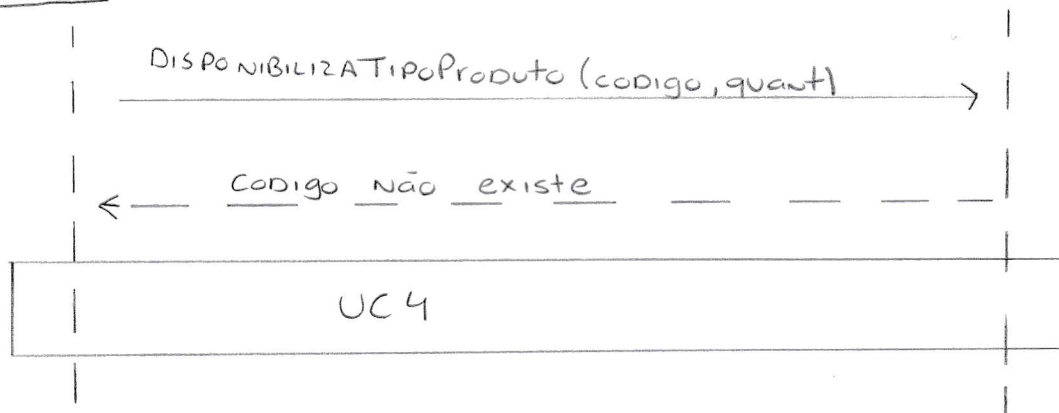 DISPONIBILIZATIPOPRODUTO (CODIGO, QUANT)
CODIGO NÃO EXISTE
UC4